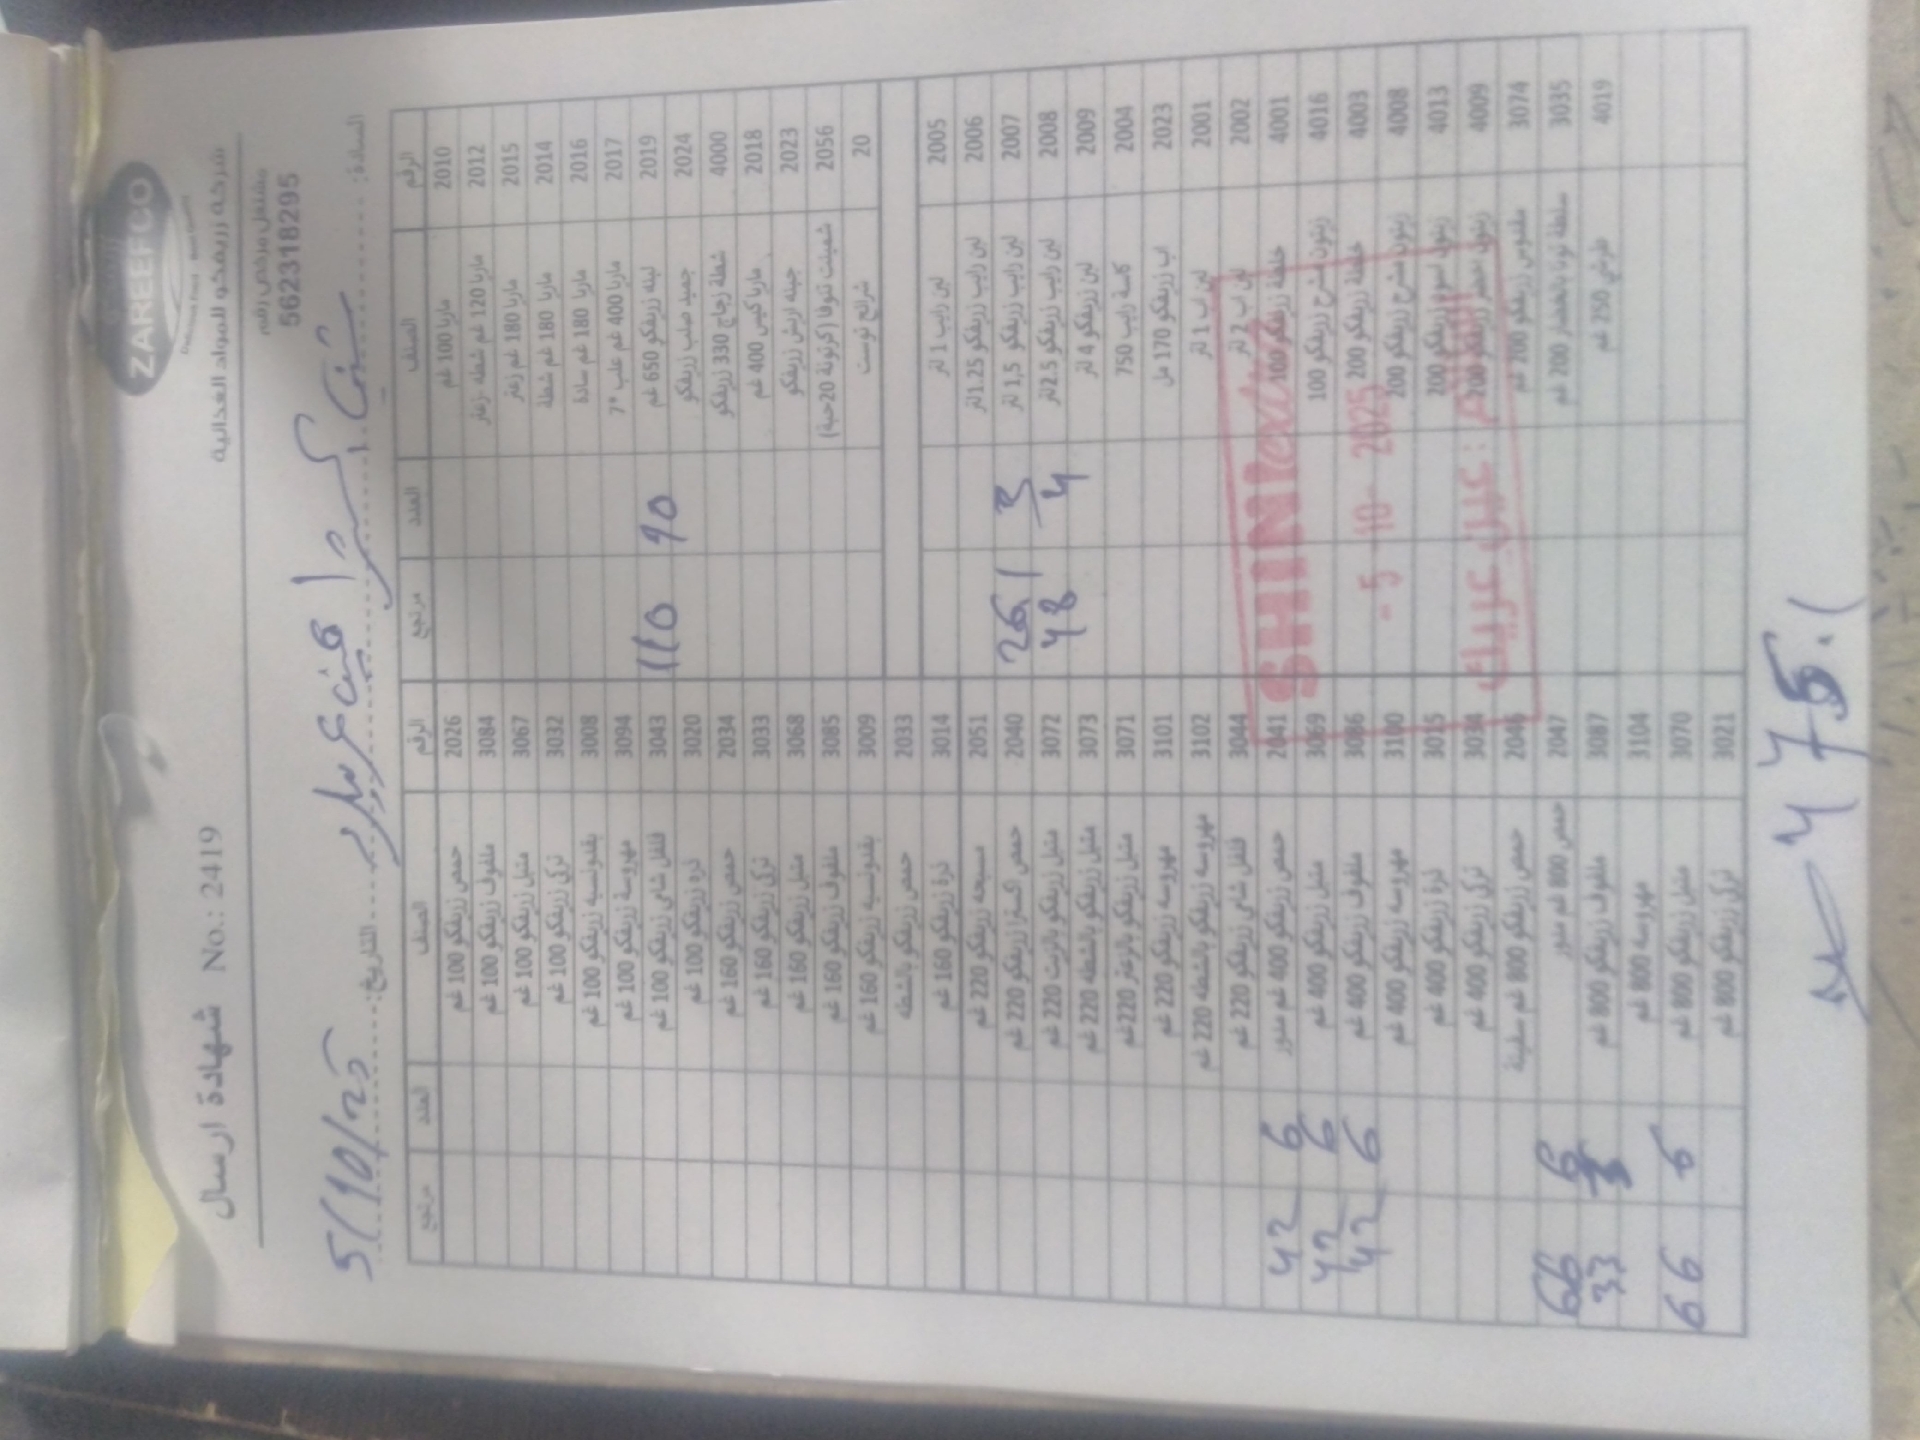 ZAREEFCO
شركة زريفكو للمواد الغذائية
مشتغل مرخص رقم
562318295
شهادة ارسال No.: 2419
السادة:
التاريخ: 5/10/25
الرقم الصنف العدد مرتجع
2010 ماريا 100 غم
2012 ماريا 120 غم شطة -زعتر
2015 ماريا 180 غم زعتر
2014 ماريا 180 غم شطة
2016 ماريا 180 غم سادة
2017 ماريا 400 غم علب *7
2019 لبنه زريفكو 650 غم 10 110
2024 جميد صلب زريفكو
4000 شطة زجاج 330 زريفكو
2018 ماريا كيس 400 غم
2023 جبنه ارش زريفكو
2056 شمينت تنوفا (كرتونة 20حبة)
20 شرائح توست
2005 لبن رايب 1 لتر
2006 لبن رايب زريفكو 1.25 لتر
2007 لبن رايب زريفكو 1,5 لتر 3 26,1
2008 لبن رايب زريفكو 2.5 لتر 4 48
2009 لبن زريفكو 4 لتر
2004 كاسة رايب 750
2023 اب زريفكو 170 مل
2001 لبن اب 1 لتر
2002 لبن اب 2 لتر
4001 خلطة زريفكو 100
4016 زيتون مشرح زريفكو 100
4003 خلطة زريفكو 200
4008 زيتون مشرح زريفكو 200
4013 زيتون اسود زريفكو 200
4009 زيتون اخضر زريفكو 200
3074 مقدوس زريفكو 200 غم
3035 سلطة تونا بالخضار 200 غم
4019 طرشي 250 غم
SHINI extra
- 5 -10- 2025
عبيل عربيك
الرقم الصنف العدد مرتجع
2026 حمص زريفكو 100 غم
3084 ملفوف زريفكو 100 غم
3067 متبل زريفكو 100 غم
3032 تركي زريفكو 100 غم
3008 بقدونسية زريفكو 100 غم
3094 مهروسة زريفكو 100 غم
3043 فلفل شامي زريفكو 100 غم
3020 ذره زريفكو 100 غم
2034 حمص زريفكو 160 غم
3033 تركي زريفكو 160 غم
3068 متبل زريفكو 160 غم
3085 ملفوف زريفكو 160 غم
3009 بقدونسيه زريفكو 160 غم
2033 حمص زريفكو بالشطه
3014 ذرة زريفكو 160 غم
2051 مسبحه زريفكو 220 غم
2040 حمص اكسترا زريفكو 220 غم
3072 متبل زريفكو بالزيت 220 غم
3073 متبل زريفكو بالشطه 220 غم
3071 متبل زريفكو بالزعتر 220 غم
3101 مهروسه زريفكو 220 غم
3102 مهروسه زريفكو بالشطه 220 غم
3044 فلفل شامي زريفكو 220 غم
2041 حمص زريفكو 400 غم مدور 6 42
3069 متبل زريفكو 400 غم 6 42
3086 ملفوف زريفكو 400 غم 6 42
3100 مهروسه زريفكو 400 غم
3015 ذرة زريفكو 400 غم
3034 تركي زريفكو 400 غم
2046 حمص زريفكو 800 غم سفينة
2047 حمص 800 غم مدور 6 66
3087 ملفوف زريفكو 800 غم 3 33
3104 مهروسه 800 غم
3070 متبل زريفكو 800 غم 6 66
3021 تركي زريفكو 800 غم
475.1